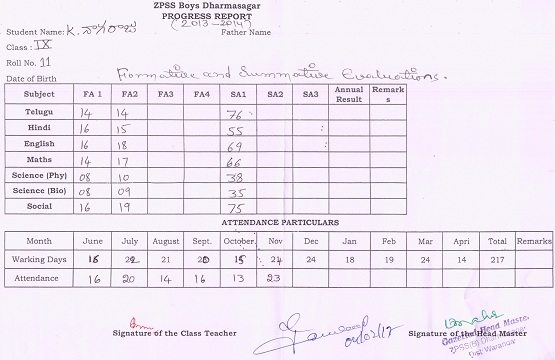 ZPSS Boys Dharmasagar
PROGRESS REPORT
(2013-2014)
Student Name: K. నాగరాజు Father Name
Class : IX
Roll No. 11
Date of Birth
Formative and Summative Evaluations.
Subject FA 1 FA2 FA3 FA4 SA1 SA2 SA3 Annual Result Remarks
Telugu 14 14 76
Hindi 16 15 55
English 16 18 69
Maths 14 17 66
Science (Phy) 08 10 38
Science (Bio) 08 09 35
Social 16 19 75
ATTENDANCE PARTICULARS
Month June July August Sept. October Nov Dec Jan Feb Mar Apr Total Remarks
Working Days 16 22 21 20 15 24 24 18 19 24 14 217
Attendance 16 20 14 16 13 23
Signature of the Class Teacher Signature of the Head Master
Gazetted Head Master
ZPSS(B) Dharmasagar
Dist Warangal